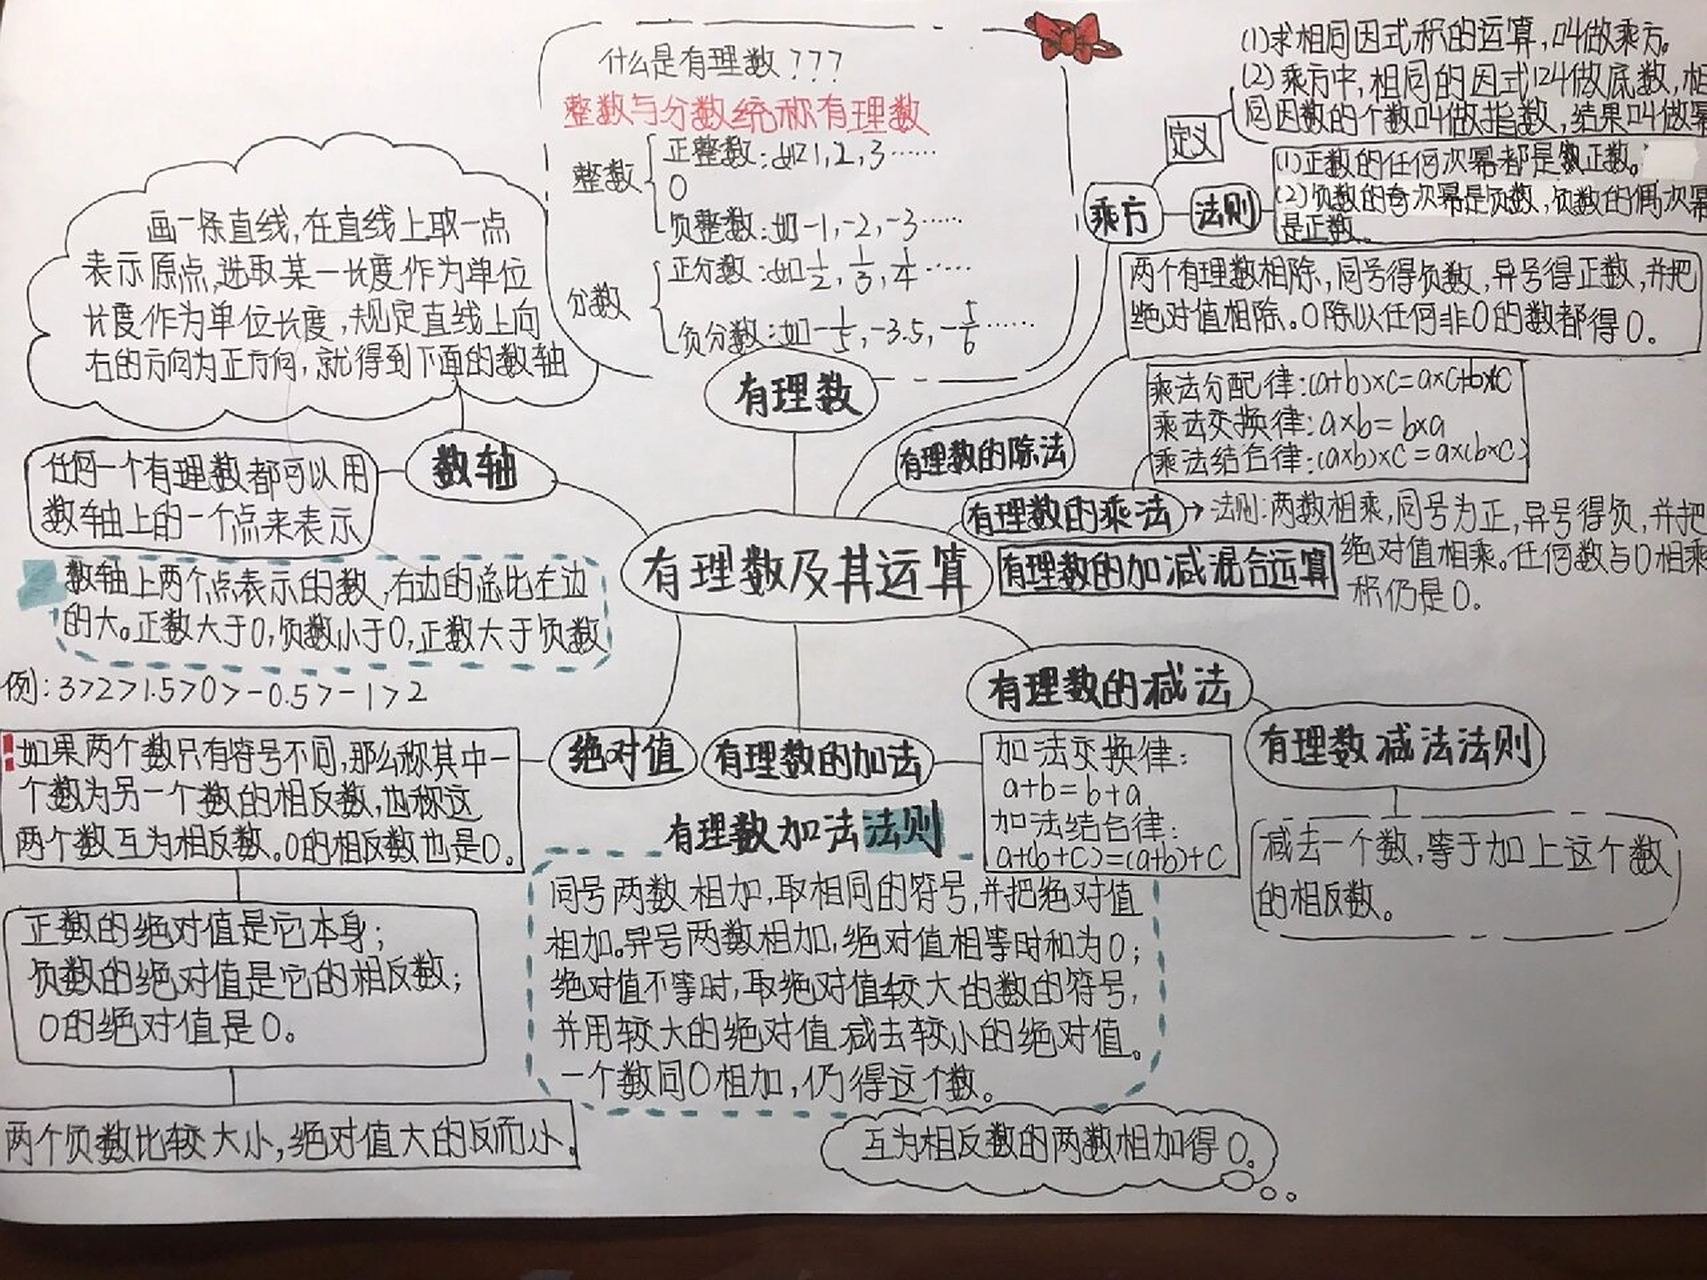 什么是有理数???
整数与分数统称有理数
整数
正整数:如1,2,3······
0
负整数:如-1,-2,-3······
分数
正分数:如1/2,1/3,1/4······
负分数:如-1/5,-3.5,-1/6······
有理数
画一条直线,在直线上取一点
表示原点,选取某一长度作为单位
长度作为单位长度,规定直线上向
右的方向为正方向,就得到下面的数轴
数轴
任何一个有理数都可以用
数轴上的一个点来表示
数轴上两个点表示的数,右边的总比左边
的大。正数大于0,负数小于0,正数大于负数
例:3>2>1.5>0>-0.5>-1>2
(1)求相同因式积的运算,叫做乘方。
(2)乘方中,相同的因式叫做底数,相
同因数的个数叫做指数,结果叫做幂
定义
乘方
法则
(1)正数的任何次幂都是正数。
(2)负数的奇次幂是负数,负数的偶次幂
是正数。
两个有理数相除,同号得负数,异号得正数,并把
绝对值相除。0除以任何非0的数都得0。
有理数的除法
乘法分配律:(a+b)×c=a×c+b×c
乘法交换律:a×b=b×a
乘法结合律:(a×b)×c=a×(b×c)
有理数的乘法
法则:两数相乘,同号为正,异号得负,并把
绝对值相乘。任何数与0相乘
积仍是0。
有理数及其运算
有理数的加减混合运算
有理数的减法
有理数减法法则
减去一个数,等于加上这个数
的相反数。
绝对值
如果两个数只有符号不同,那么称其中一
个数为另一个数的相反数,也称这
两个数互为相反数。0的相反数也是0。
正数的绝对值是它本身;
负数的绝对值是它的相反数;
0的绝对值是0。
两个负数比较大小,绝对值大的反而小。
有理数的加法
加法交换律:
a+b=b+a
加法结合律:
a+(b+c)=(a+b)+c
有理数加法法则
同号两数相加,取相同的符号,并把绝对值
相加。异号两数相加,绝对值相等时和为0;
绝对值不等时,取绝对值较大的数的符号,
并用较大的绝对值减去较小的绝对值。
一个数同0相加,仍得这个数。
互为相反数的两数相加得0。